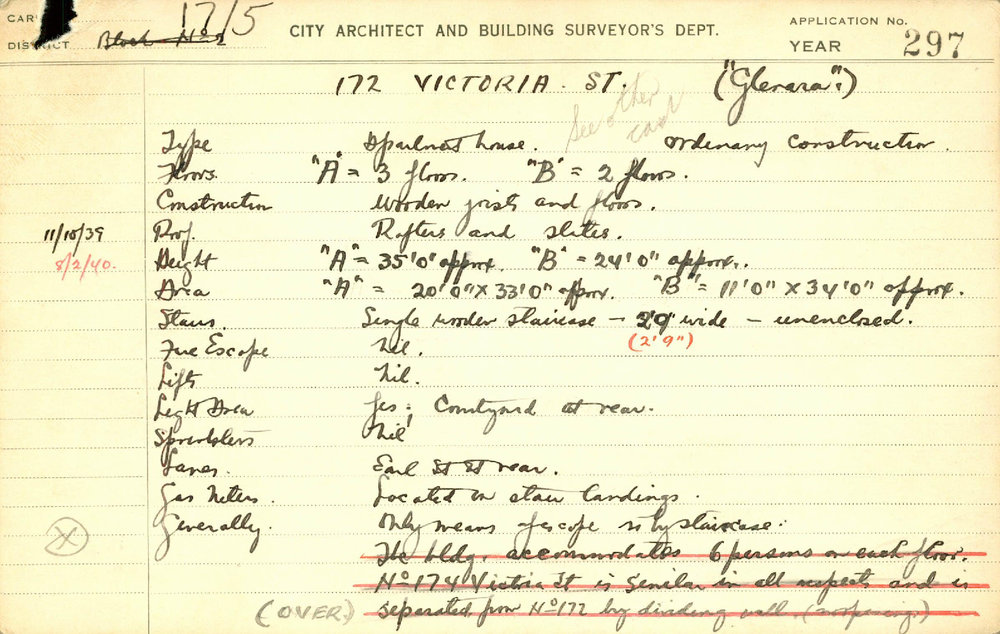 CAR 17/5 CITY ARCHITECT AND BUILDING SURVEYOR'S DEPT. APPLICATION No.
DISTRICT Block No 2 YEAR 297
172 VICTORIA ST. ("Glenara".)
See other card
Type Apartment house. Ordinary construction.
Floors. "A" = 3 floors. "B" = 2 floors.
Construction Wooden joists and floors.
11/10/39 Roof. Rafters and slates.
8/2/40. Height "A" = 35'0" approx. "B" = 24'0" approx.
Area "A" = 20'0" X 33'0" approx. "B" = 11'0" X 34'0" approx.
Stairs. Single wooden staircase – 2'9" wide – unenclosed.
(2'9")
Fire Escape Nil.
Lifts Nil.
Light Area Yes; Courtyard at rear.
Sprinklers Nil
Lanes. Earl St at rear.
Gas Meters. Located on stair landings.
Generally. Only means of escape is by staircase.
X
The bldg. accommodates 6 persons on each floor.
No 174 Victoria St is similar in all respects and is
(OVER) separated from No 172 by dividing wall. (no openings)